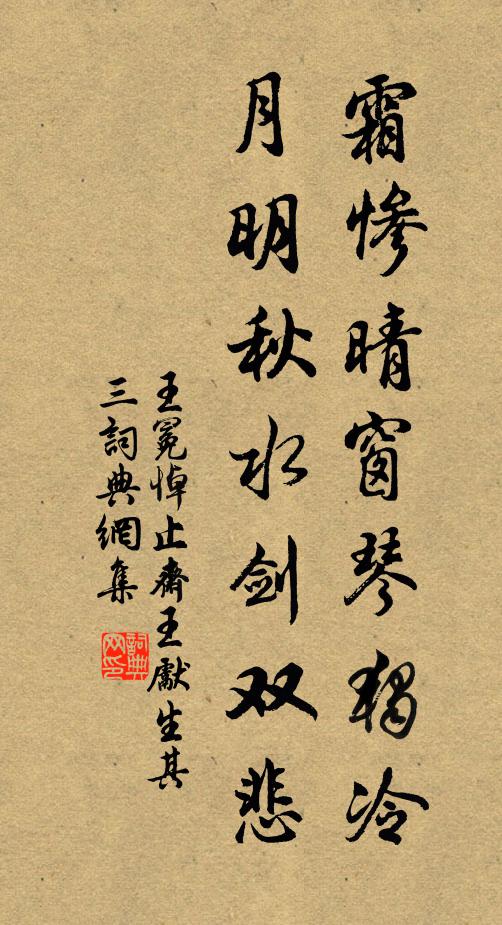 霜惨晴窗琴独冷
月明秋水剑双悲
王冕悼止斋王獻生其
三詞典網集
詞典網印